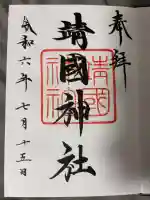 奉拝
靖國神社
靖國神社
令和六年七月十五日